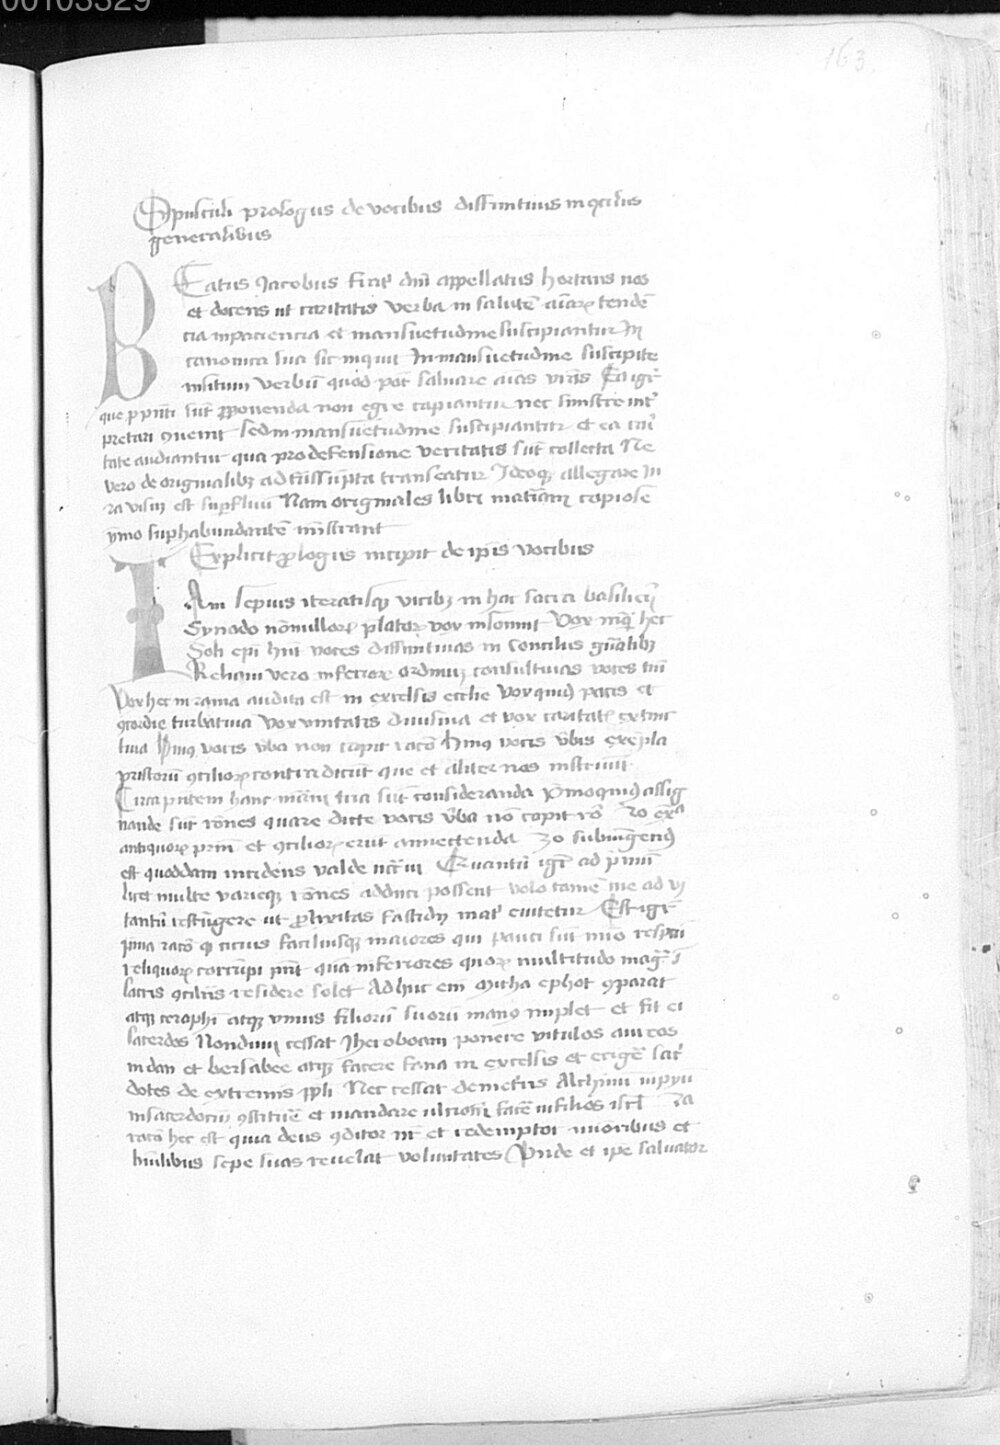 00103329
163
Opusculi prologus de vocibus diffinitivis in conciliis
generalibus
BEatus Jacobus frater domini appellatus hortans nos
et docens ut caritatis verba in salutem animarum tenden
cia in paciencia et mansuetudine suscipiantur In
canonica sua sic inquit In mansuetudine suscipite
insitum verbum quod potest salvare animas vestras Ea igitur
que pro presenti sunt proponenda non egre capiantur nec sinistre inter
pretari queunt sed in mansuetudine suscipiantur et ea
tate audiantur qua pro defensione veritatis sunt collecta Ne
vero de originalibus ad transsumpta transeatur Ideoque allegare
ra visum est superfluum Nam originales libri materiam copiose
ymo superhabundantem ministrant
Explicit prologus incipit de ipsis vocibus
IAm sepius iteratisque vicibus in hac sacra basiliensi
Synodo nonnullorum prelatorum vox insonuit Vox inquam hec
Soli episcopi habent voces diffinitivas in Conciliis generalibus
Reliqui vero inferiorum ordinum consultivas voces
Vox hec in rama audita est in excelsis ecclesie vox quidem pacis et
concordie turbativa vox unitatis divisiva et vox caritatis extinc
tiva Huius vocis verba non capit racio Huius vocis verbis exempla
priscorum conciliorum contradicunt que et aliter nos instruunt
Circa presentem hanc materiam tria sunt consideranda Primo quidem assig
nande sunt raciones quare dicte vocis verba non capit racio 2o exempla
antiquorum patrum et conciliorum erunt annectenda 3o subiungendum
est quoddam incidens valde necessarium Quantum igitur ad primum
licet multe varieque raciones adduci possent volo tamen me ad vi
tantum restringere ut prolixitas fastidii mater evitetur Est igitur
prima racio quia cicius faciliusque maiores qui pauci sunt respectu
reliquorum corrumpi possunt quam inferiores quorum multitudo magna in
sacris conciliis residere solet Adhuc enim Micha ephot comparat
atque teraphim atque unius filiorum suorum manum implet et fit ei
sacerdos Nondum cessat Iheroboam ponere vitulos aureos
in dan et bersabee atque facere fana in excelsis et erigere sacer
dotes de extremis populi Nec cessat demetrius Alchimum impium
in sacerdocium constituere et mandare ulcionem facere in filios israel 2a
racio hec est quia deus conditor noster et redemptor minoribus et
humilibus sepe suas revelat voluntates Unde et ipse salvator